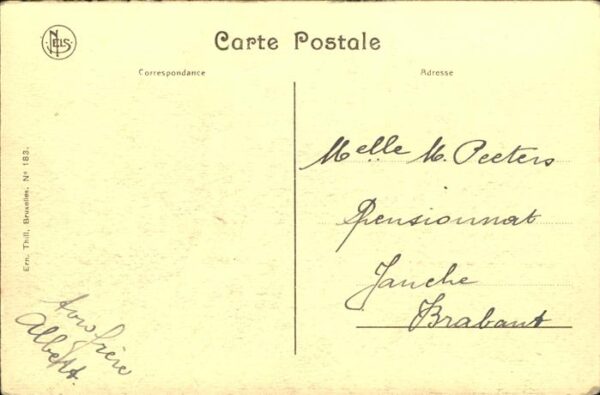 NELS
Carte Postale
Correspondance
Adresse
Melle M. Peeters
Pensionnat
Jauche
Brabant
Ern. Thill, Bruxelles. N° 183.
ton frère
Albert.